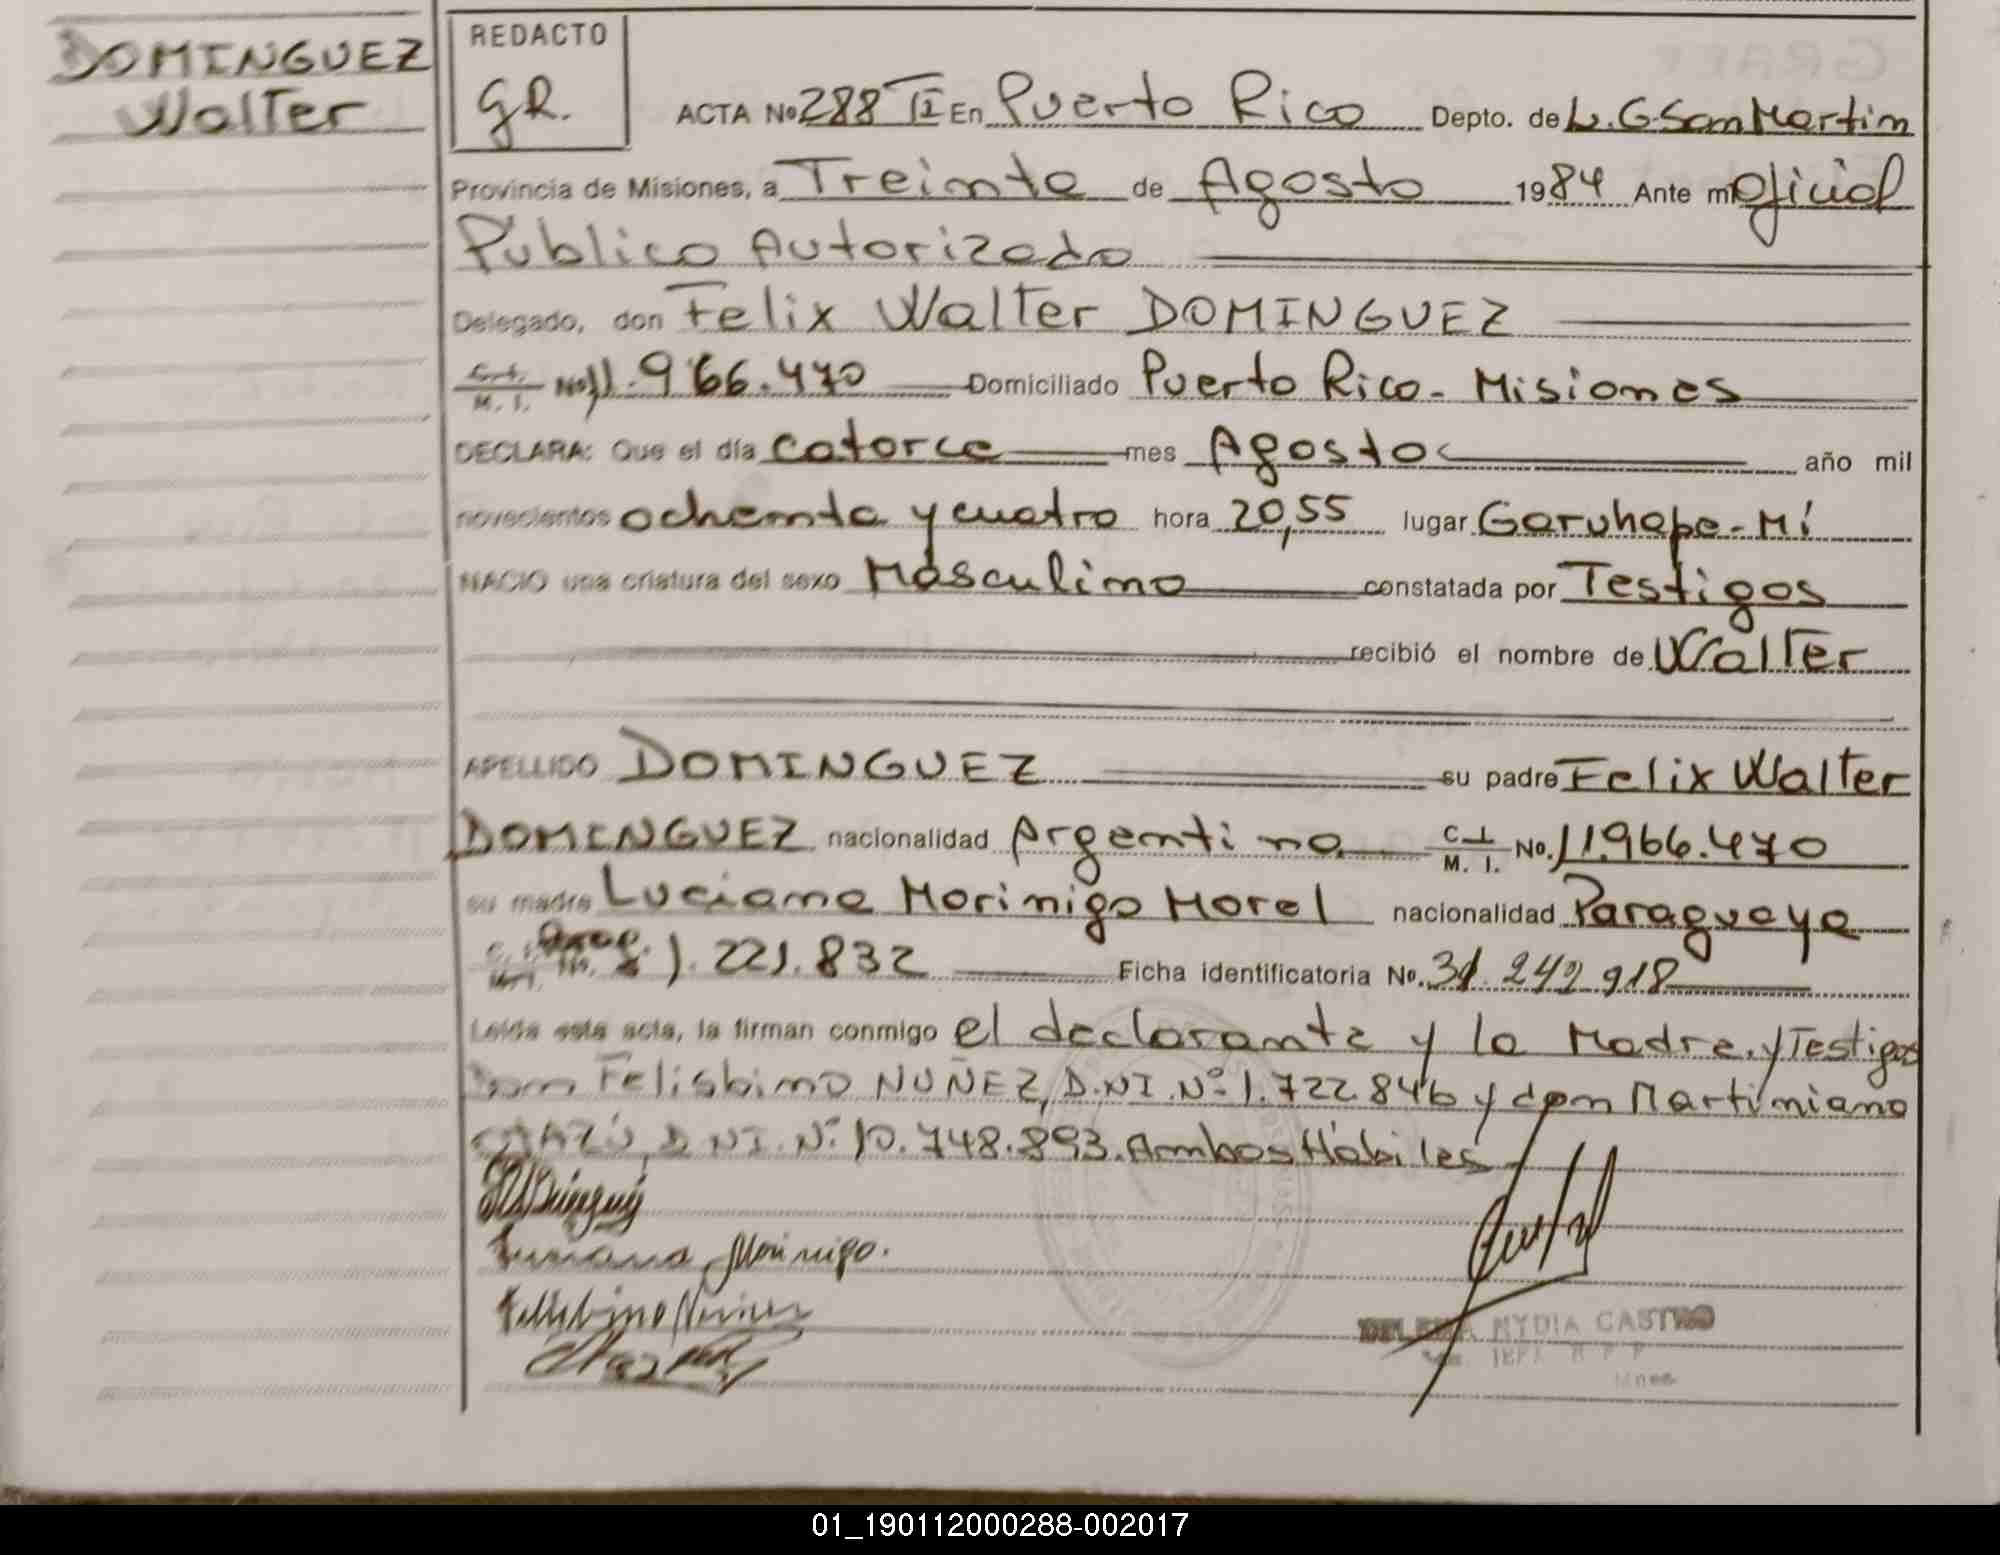 DOMINGUEZ
Walter
REDACTO
GR.
ACTA No 288 TI En Puerto Rico Depto. de L. G. San Martin
Provincia de Misiones, a Treinta de Agosto 1984 Ante mi Oficial
Público Autorizado
Delegado, don Felix Walter DOMINGUEZ
C. I. M. I. No 11.966.470 Domiciliado Puerto Rico - Misiones
DECLARA: Que el día catorce mes Agosto año mil
novecientos ochenta y cuatro hora 20,55 lugar Garuhape - Mí
NACIO una criatura del sexo Masculino constatada por Testigos
recibió el nombre de Walter
APELLIDO DOMINGUEZ su padre Felix Walter
DOMINGUEZ nacionalidad Argentina C. I. M. I. No. 11.966.470
su madre Luciana Morinigo Morel nacionalidad Paraguaya
1.221.832 Ficha identificatoria No. 31.242.918
Leída esta acta, la firman conmigo el declarante y la Madre. y Testigos
Don Felisbino NUÑEZ, D.NI. Nº 1.722.846 y don Martiniano
D.NI. Nº 10.748.893. Ambos Hábiles
Morinigo.
NYDIA CASTRO
01_190112000288-002017